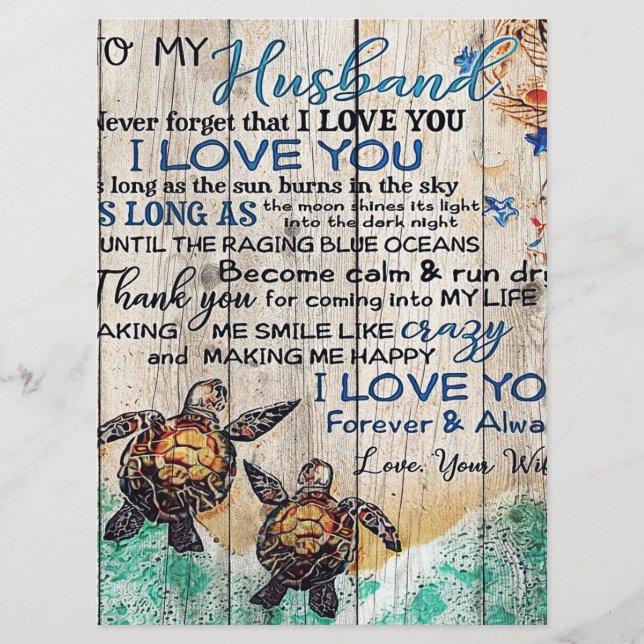 TO MY Husband
Never forget that I LOVE YOU
I LOVE YOU
s long as the sun burns in the sky
S LONG AS the moon shines its light
into the dark night
UNTIL THE RAGING BLUE OCEANS
Become calm & run dry
Thank you for coming into MY LIFE
AKING ME SMILE LIKE crazy
and MAKING ME HAPPY
I LOVE YO
Forever & Alwa
Love, Your Wif